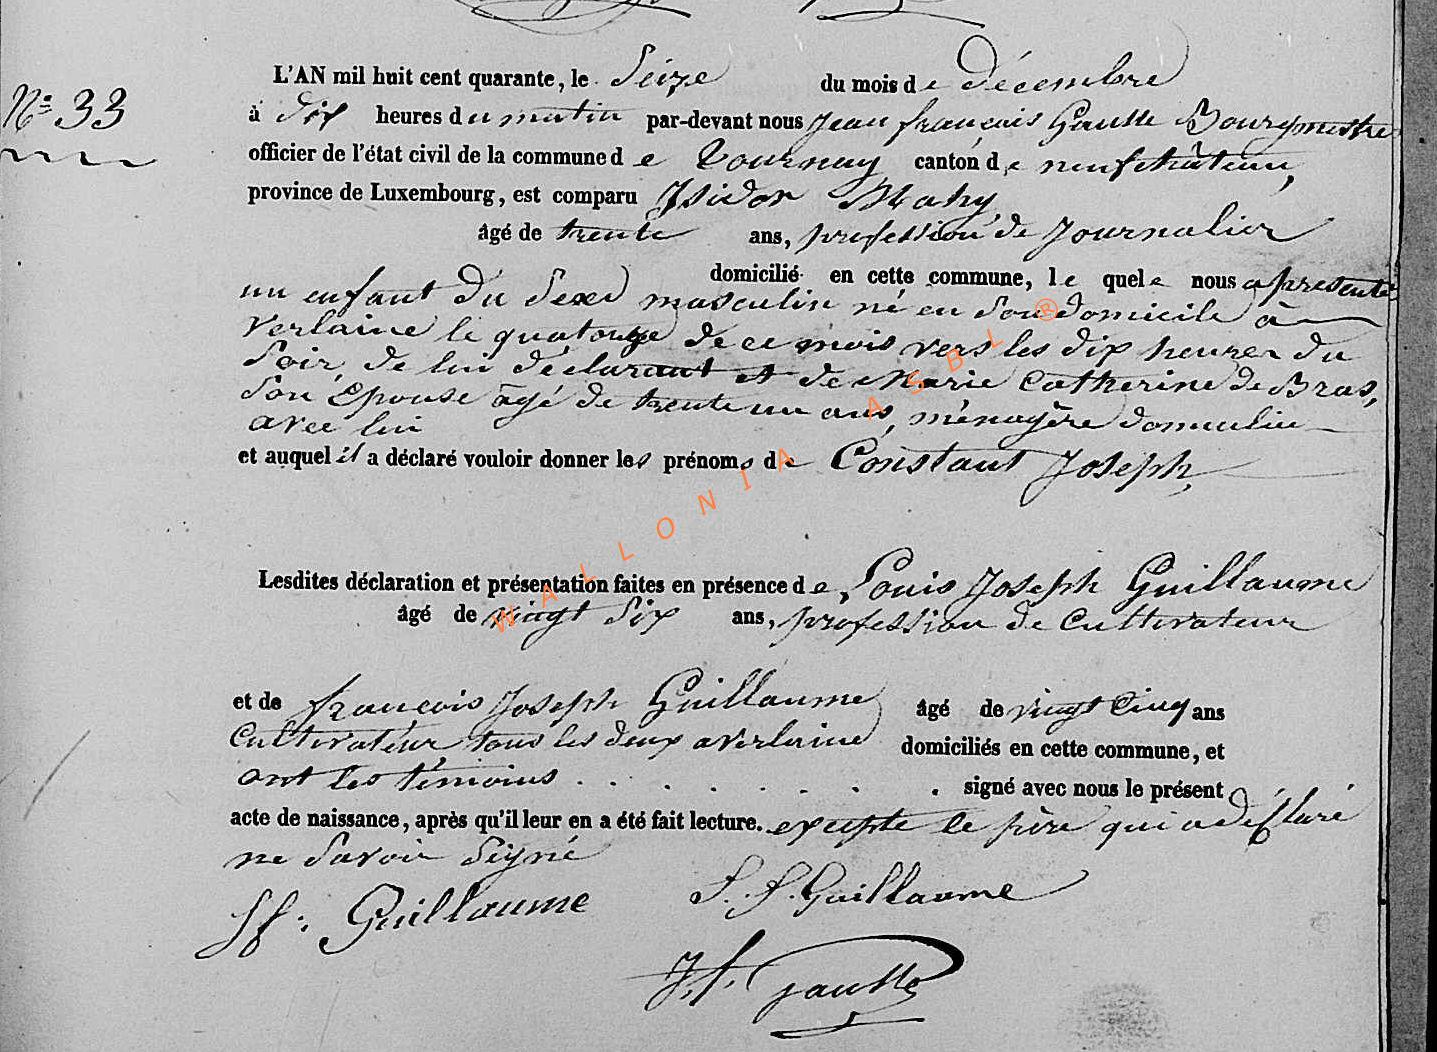 N° 33
L'AN mil huit cent quarante, le Seize du mois de décembre
à dix heures du matin par-devant nous Jean françois Gausse Bourgmestre
officier de l'état civil de la commune de Tournay canton de neufchâteau,
province de Luxembourg, est comparu Isidor Mahy
âgé de trente ans, profession de Journalier
domicilié en cette commune, le quel nous a presenté
un enfant du Sexe masculin né en Son domicile à
Verlaine le quatorze de ce mois vers les dix heures du
Soir de lui déclarant et de Marie Catherine de Bras,
Son Epouse âgé de trente un ans, ménagère domicilié
avec lui
et auquel il a déclaré vouloir donner les prénoms de Constant Joseph,
Lesdites déclaration et présentation faites en présence de Louis Joseph Guillaume
âgé de vingt Six ans, profession de Cultivateur
et de françois Joseph Guillaume âgé de vingt Cinq ans
Cultivateur tous les deux a verlaine domiciliés en cette commune, et
ont les témoins . . . . . . . signé avec nous le présent
acte de naissance, après qu'il leur en a été fait lecture. excepte le père qui a déclaré
ne Savoir Signé
Guillaume
Guillaume
J. f. Gausse
WALLONIA ASBL ®